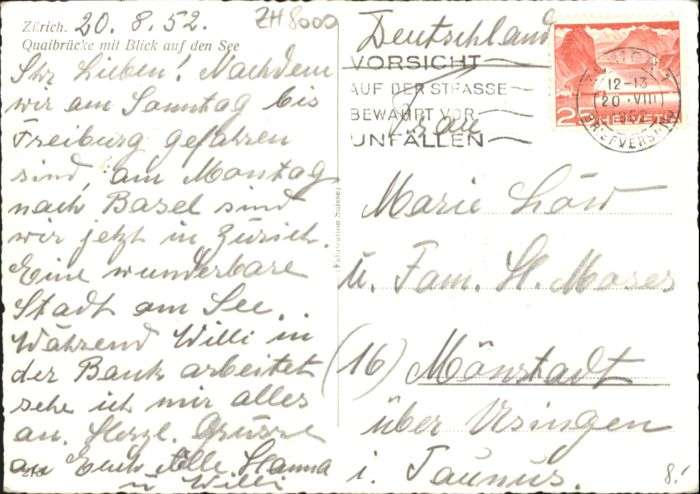 Zürich. 20. 8. 52.
ZH 8000
Quaibrücke mit Blick auf den See
Ihr Lieben! Nachdem
wir am Sonntag bis
Freiburg gefahren
sind, am Montag
nach Basel sind
wir jetzt in Zürich.
Eine wunderbare
Stadt am See..
Während Willi in
der Bank arbeitet
sehe ich mir alles
an. Herzl. Grüsse
an Euch Alle Hanna
u Willi
Deutschland
VORSICHT
AUF DER STRASSE
BEWAHRT VOR
UNFÄLLEN
12-13
20. VIII
1952
BRIEFVERSAND
HELVETIA
Frau
Marie Löw
u. Fam. H. Moses
(16) Mönstadt
über Usingen
i. Taunus.
8.!